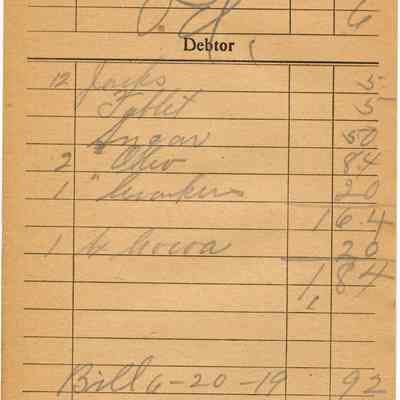 6
Debtor
12 Jacks 5
Tablit 5
Sugar 50
2 " Oleo 84
1 " Crackers 20
1 64
1 lb Cocoa 20
1 84
Bill 6-20-19 92